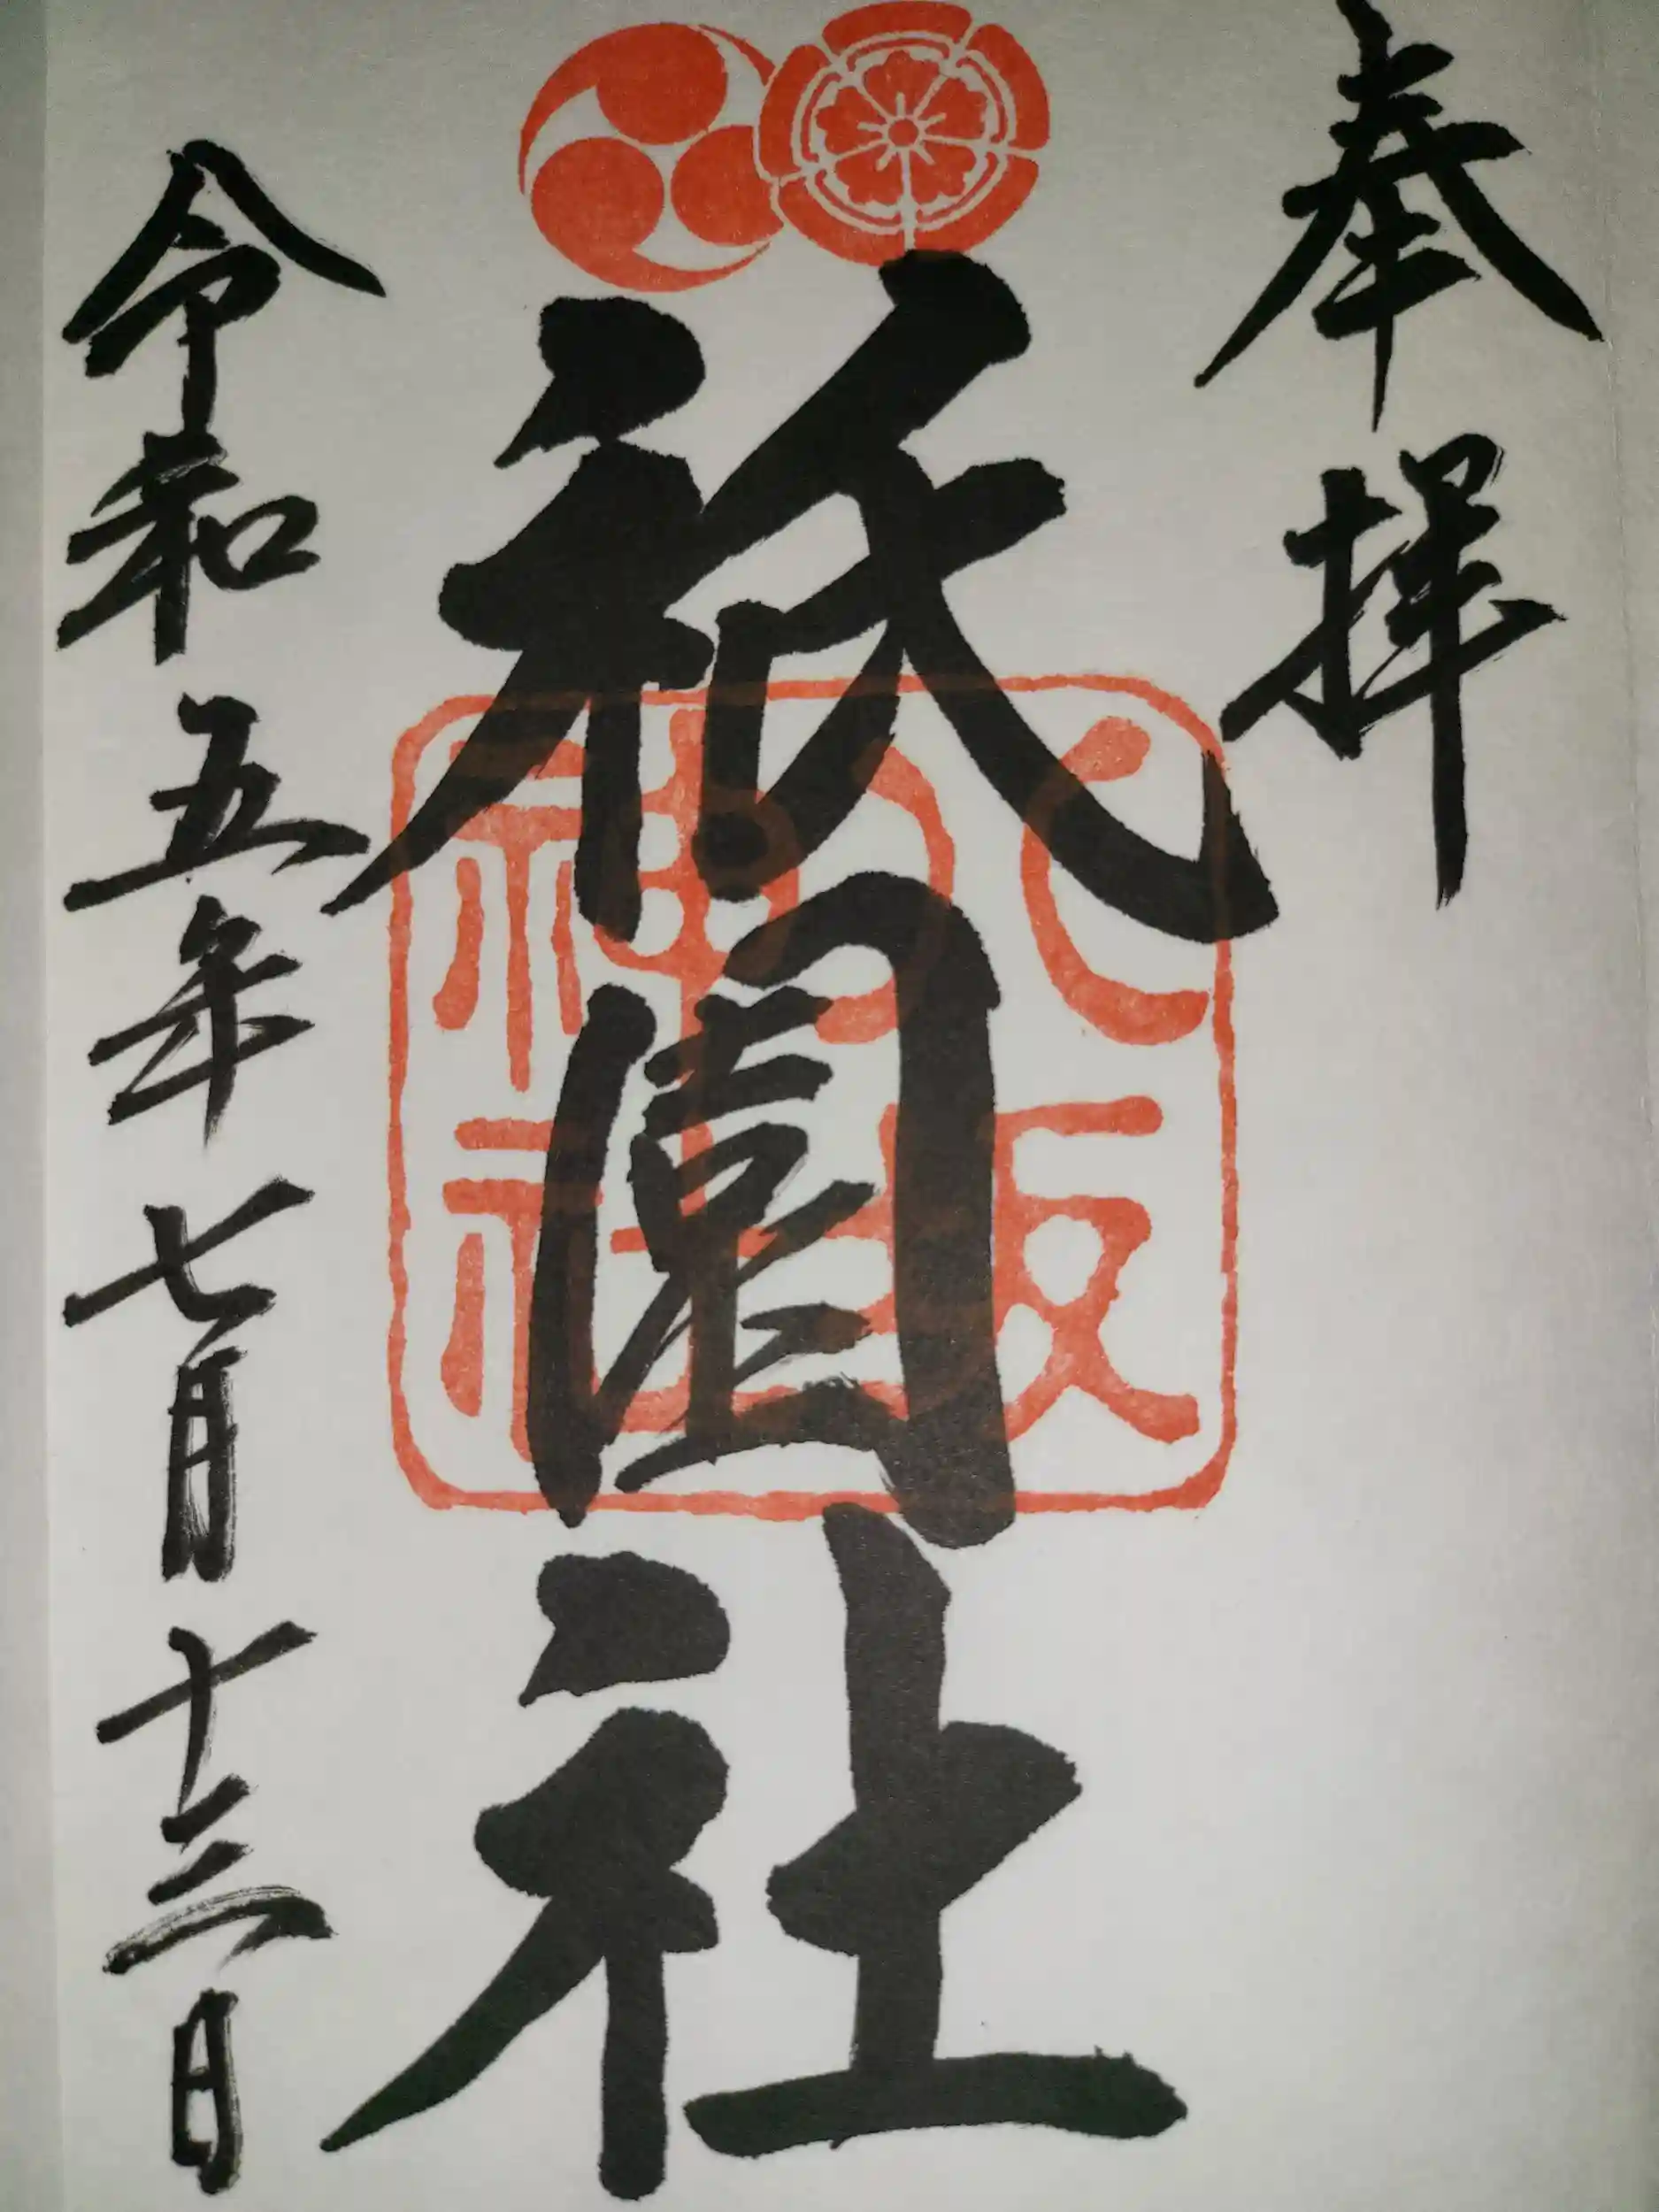 奉拝
祇園社
八坂神社
令和五年七月十三日